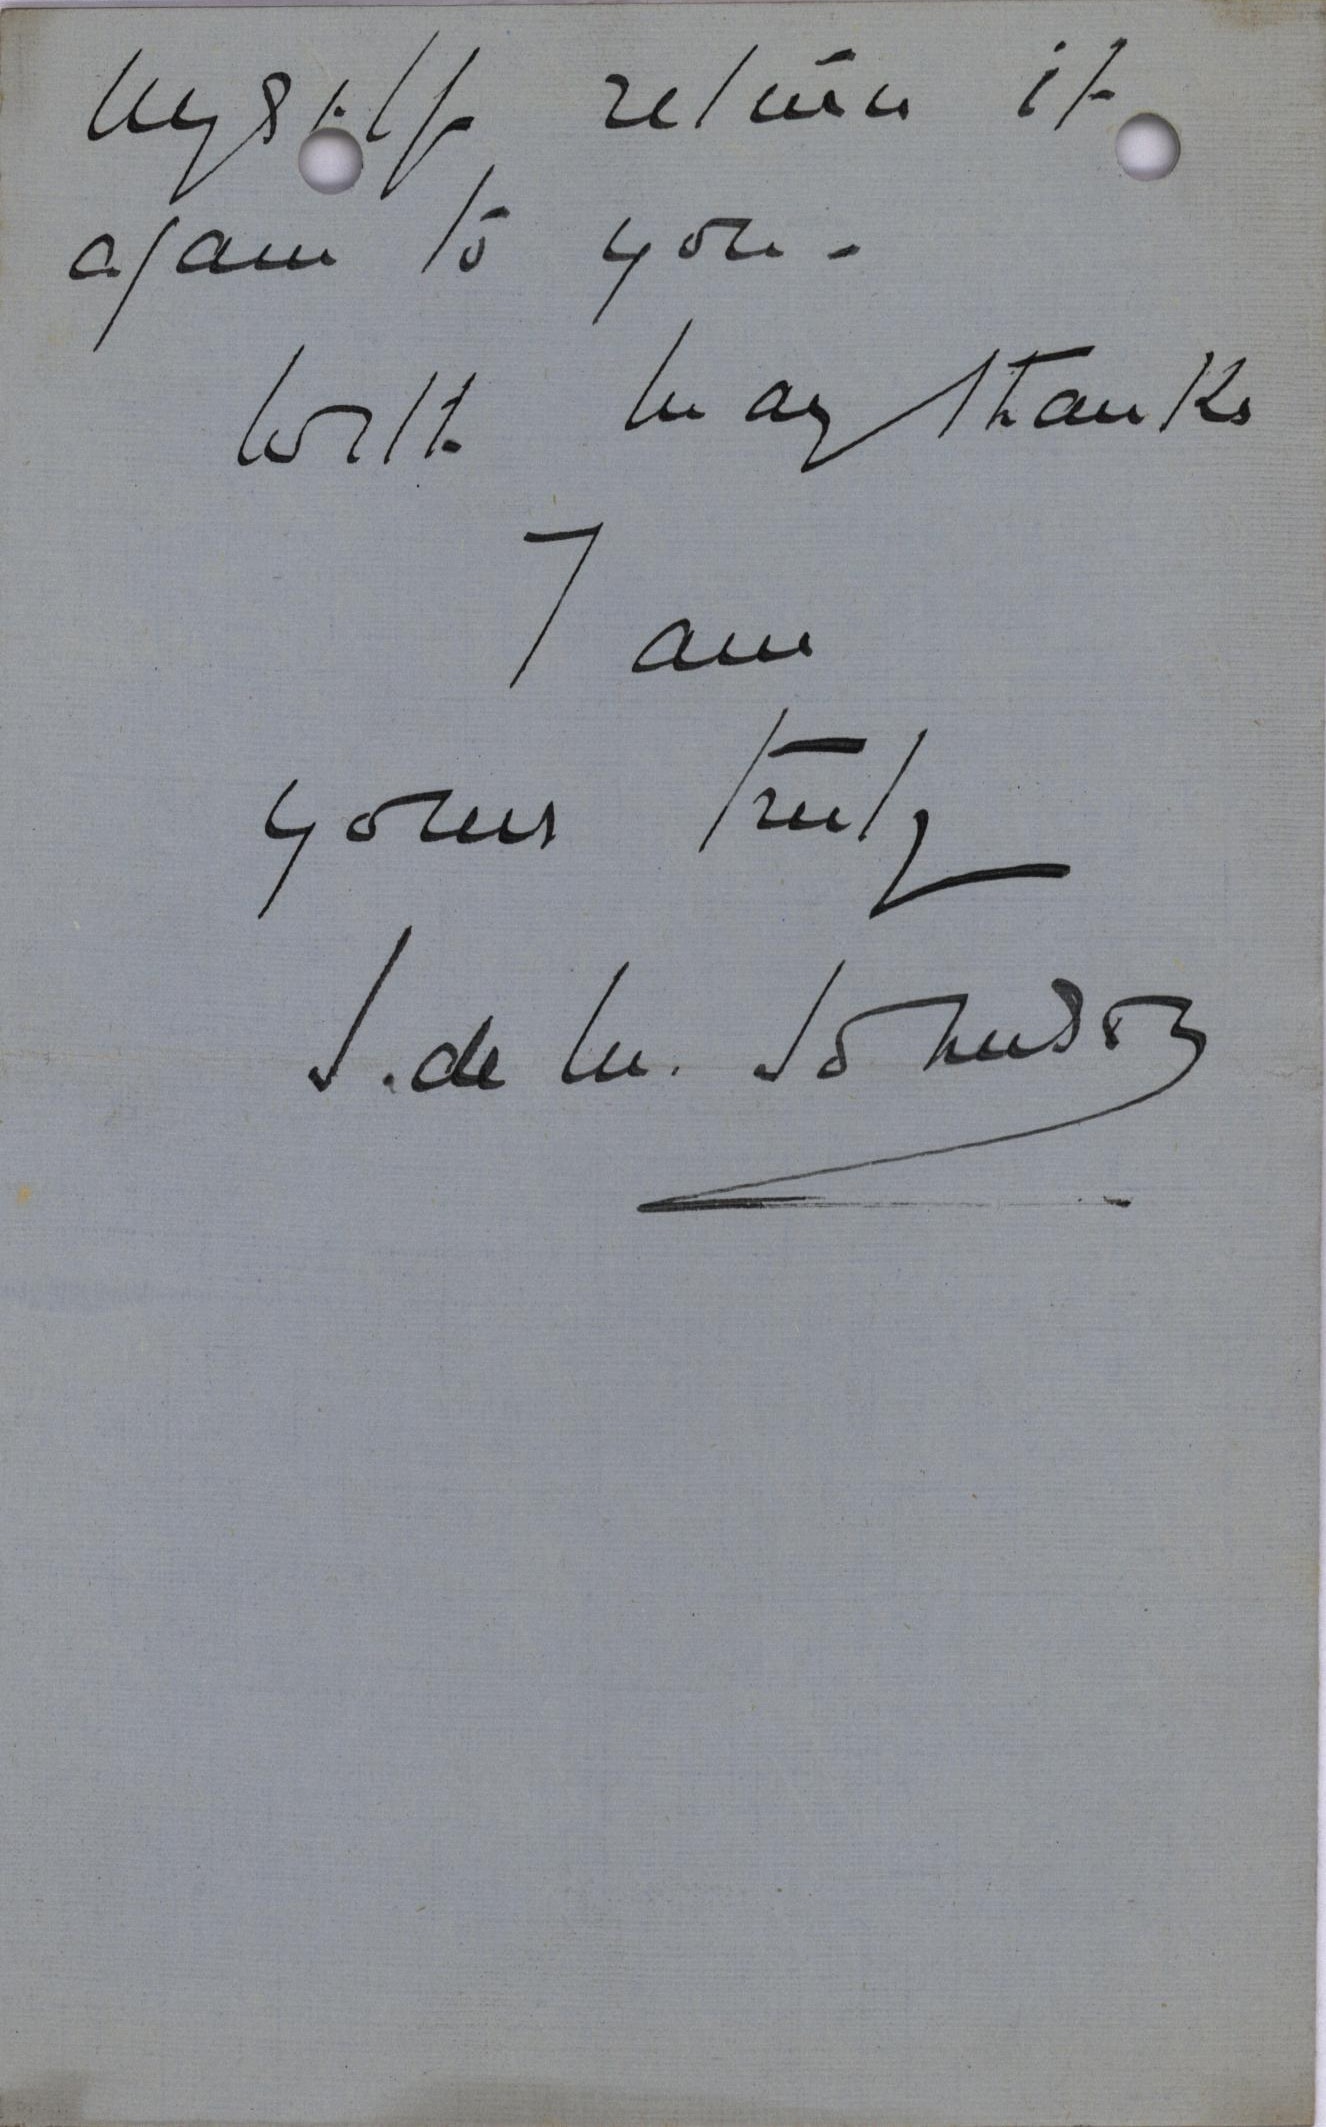 myself return it
again to you -
With many thanks
I am
yours truly
J. de M. Johnson